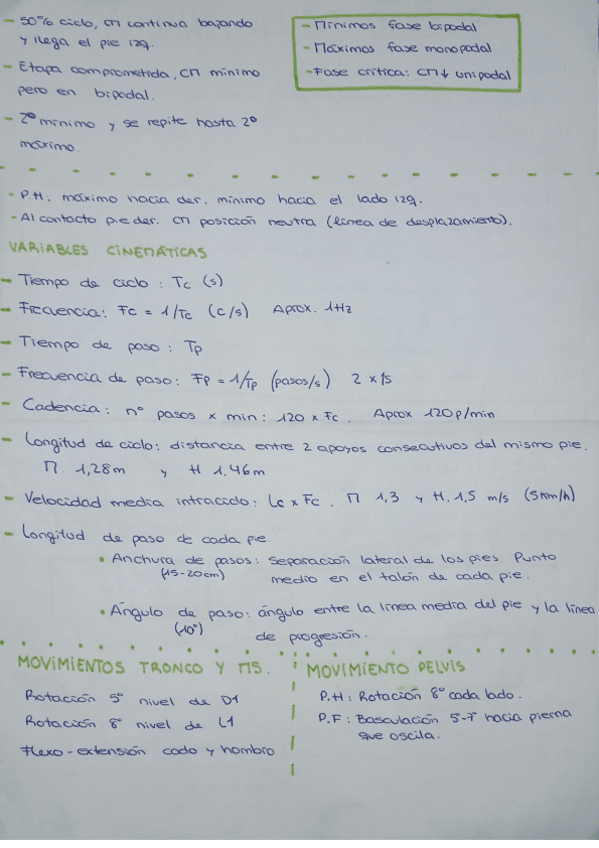 - 50% ciclo, CM continua bajando
y llega el pie izq.
- Etapa comprometida, CM mínimo
pero en bipodal.
- 2º mínimo y se repite hasta 2º
máximo.
- Mínimos fase bipodal
- Máximos fase monopodal
- Fase crítica: CM↓ unipodal
- P.H. máximo hacia der. mínimo hacia el lado izq.
- Al contacto pie der. CM posición neutra (línea de desplazamiento).
VARIABLES CINEMÁTICAS
- Tiempo de ciclo: Tc (s)
- Frecuencia: Fc = 1/Tc (c/s) Aprox. 1Hz
- Tiempo de paso: Tp
- Frecuencia de paso: Fp = 1/Tp (pasos/s) 2 x 1s
- Cadencia: nº pasos x min: 120 x Fc. Aprox 120p/min
- Longitud de ciclo: distancia entre 2 apoyos consecutivos del mismo pie.
M. 1,28m y H 1.46m
- Velocidad media intraciclo: Lc x Fc. M 1,3 y H. 1,5 m/s (5km/h)
- Longitud de paso de cada pie.
• Anchura de pasos: separación lateral de los pies. Punto
(15-20cm) medio en el talón de cada pie.
• Ángulo de paso: ángulo entre la línea media del pie y la línea
(10º) de progresión.
MOVIMIENTOS TRONCO Y MS.
Rotación 5º nivel de D1
Rotación 8º nivel de L1
Flexo-extensión codo y hombro
MOVIMIENTO PELVIS
P.H: Rotación 8º cada lado.
P.F: Basculación 5-7º hacia pierna
que oscila.